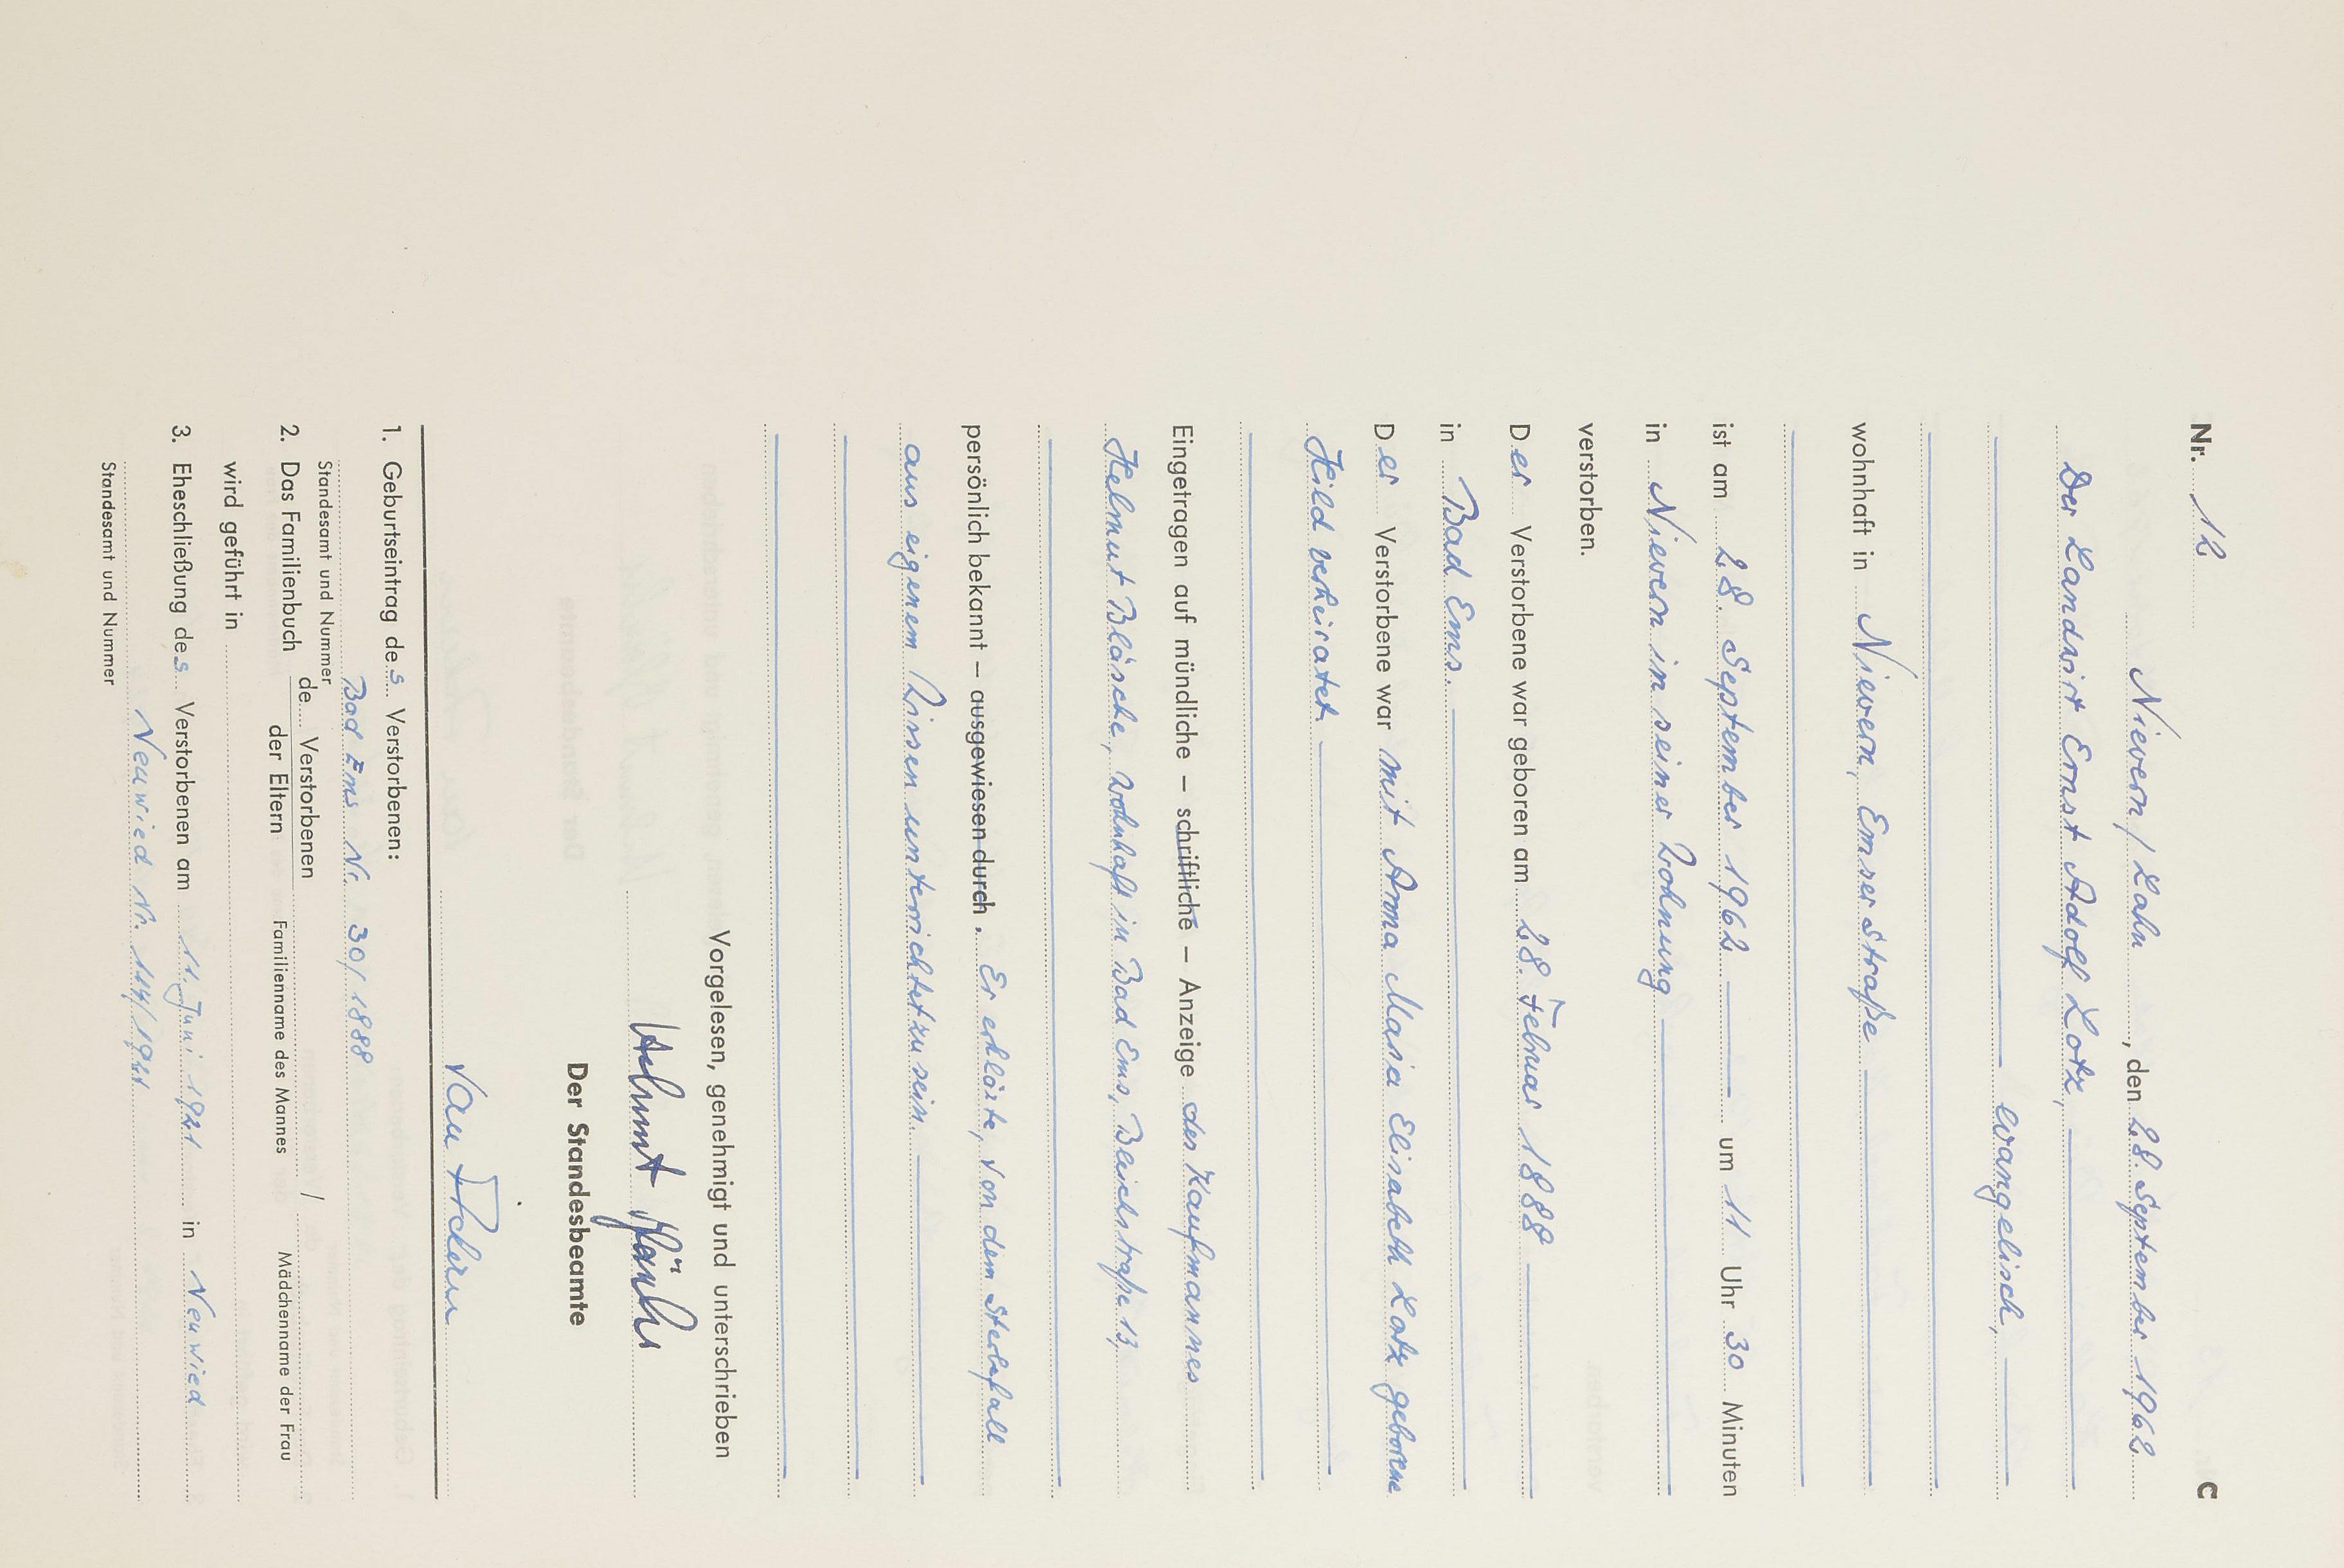 Nr. 12 C
Nievern / Lahn, den 28. September 1962
Der Landwirt Ernst Adolf Lotz,
evangelisch,
wohnhaft in Nievern, Emser Straße
ist am 28. September 1962 um 11 Uhr 30 Minuten
in Nievern in seiner Wohnung
verstorben.
Der Verstorbene war geboren am 28. Februar 1888
in Bad Ems.
Der Verstorbene war mit Anna Maria Elisabeth Lotz geborene
Hild verheiratet.
Eingetragen auf mündliche – schriftliche – Anzeige des Kaufmannes
Helmut Bläsche, wohnhaft in Bad Ems, Bleichstraße 13,
persönlich bekannt – ausgewiesen durch. Er erklärte, von dem Sterbefall
aus eigenem Wissen unterrichtet zu sein.
Vorgelesen, genehmigt und unterschrieben
Helmut
Der Standesbeamte
1. Geburtseintrag des Verstorbenen:
Bad Ems Nr. 30/1888
Standesamt und Nummer
2. Das Familienbuch de Verstorbenen / der Eltern
Familienname des Mannes Mädchenname der Frau
wird geführt in
3. Eheschließung des Verstorbenen am 11. Juni 1921 in Neuwied
Neuwied Nr. 114/1921
Standesamt und Nummer